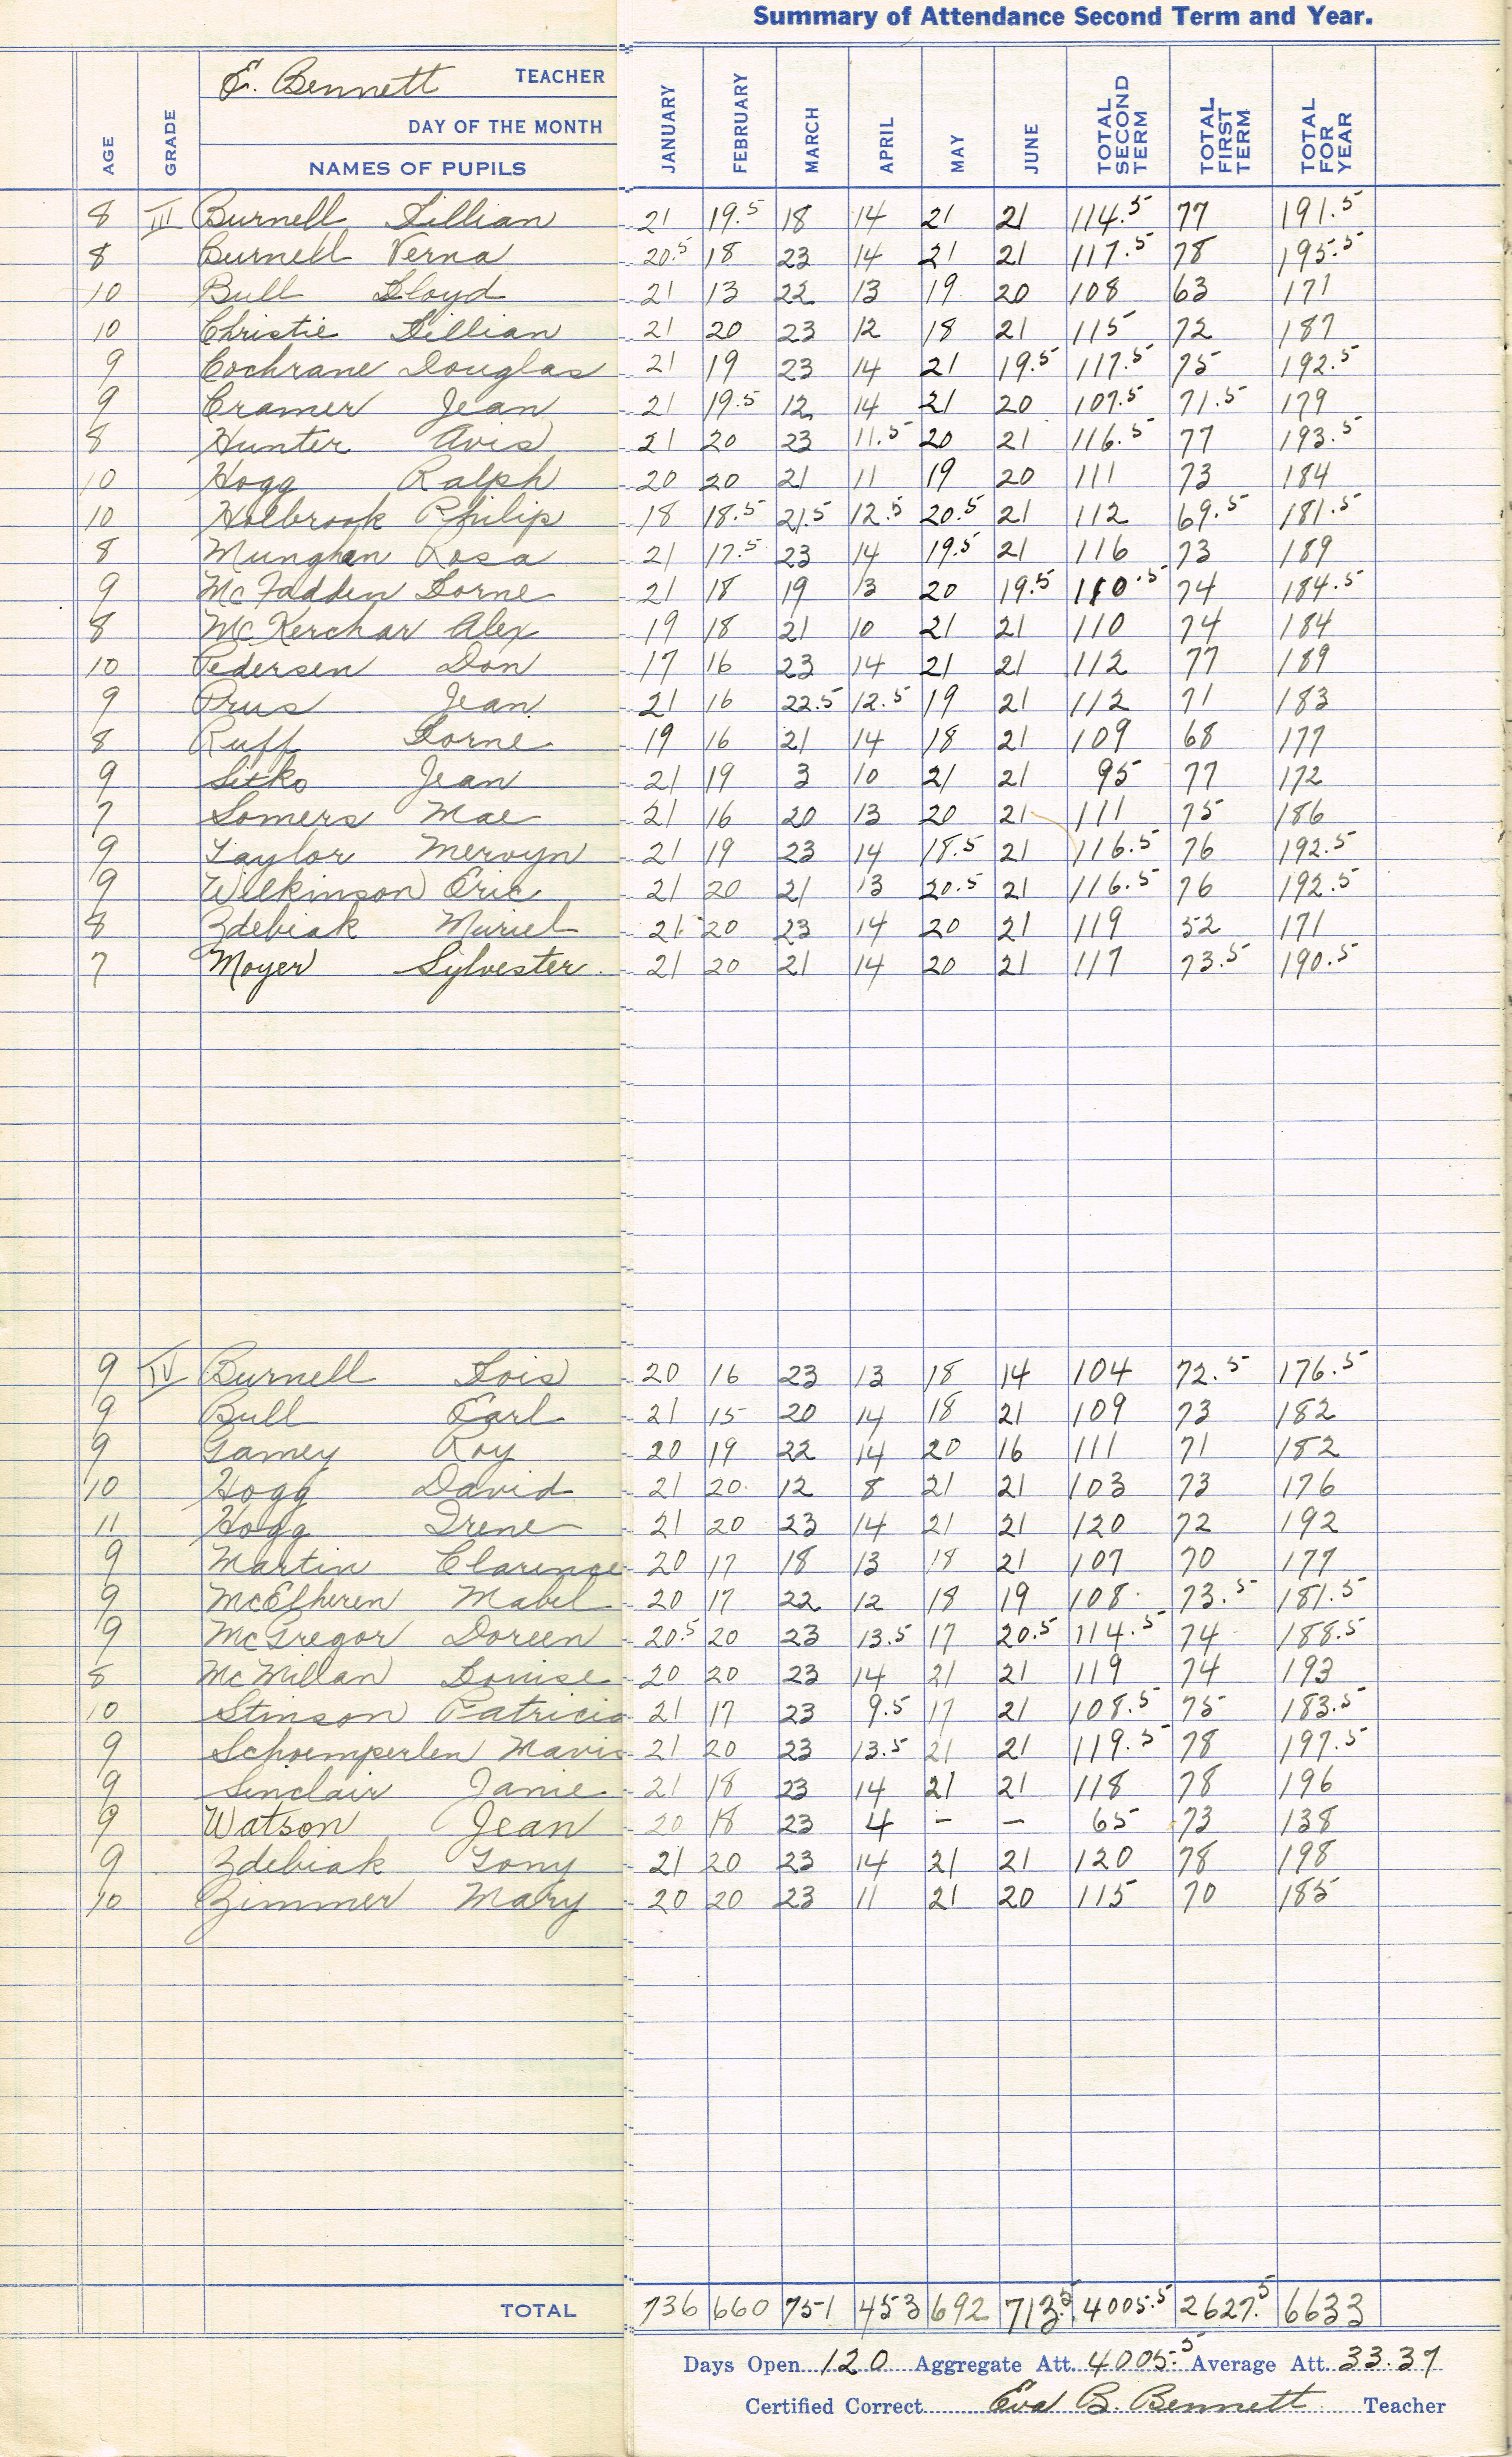 Summary of Attendance Second Term and Year.
E. Bennett TEACHER
DAY OF THE MONTH
AGE GRADE NAMES OF PUPILS JANUARY FEBRUARY MARCH APRIL MAY JUNE TOTAL SECOND TERM TOTAL FIRST TERM TOTAL FOR YEAR
8 III Burnell Lillian 21 19.5 18 14 21 21 114.5 77 191.5
8 Burnell Verna 20.5 18 23 14 21 21 117.5 78 195.5
10 Bull Lloyd 21 13 22 13 19 20 108 63 171
10 Christie Lillian 21 20 23 12 18 21 115 72 187
9 Cochrane Douglas 21 19 23 14 21 19.5 117.5 75 192.5
9 Cramer Jean 21 19.5 12 14 21 20 107.5 71.5 179
8 Hunter Avis 21 20 23 11.5 20 21 116.5 77 193.5
10 Hogg Ralph 20 20 21 11 19 20 111 73 184
10 Holbrook Philip 18 18.5 21.5 12.5 20.5 21 112 69.5 181.5
8 Munghan Rosa 21 17.5 23 14 19.5 21 116 73 189
9 McFadden Lorne 21 18 19 13 20 19.5 110.5 74 184.5
8 McKerchar Alex 19 18 21 10 21 21 110 74 184
10 Pedersen Don 17 16 23 14 21 21 112 77 189
9 Prus Jean 21 16 22.5 12.5 19 21 112 71 183
8 Ruff Lorne 19 16 21 14 18 21 109 68 177
9 Sitko Jean 21 19 3 10 21 21 95 77 172
7 Somers Mae 21 16 20 13 20 21 111 75 186
9 Taylor Mervyn 21 19 23 14 18.5 21 116.5 76 192.5
9 Wilkinson Eric 21 20 21 13 20.5 21 116.5 76 192.5
8 Zdebiak Muriel 21 20 23 14 20 21 119 52 171
7 Moyer Sylvester. 21 20 21 14 20 21 117 73.5 190.5
9 IV Burnell Lois 20 16 23 13 18 14 104 72.5 176.5
9 Bull Earl 21 15 20 14 18 21 109 73 182
9 Gamey Roy 20 19 22 14 20 16 111 71 182
10 Hogg David 21 20 12 8 21 21 103 73 176
11 Hogg Irene 21 20 23 14 21 21 120 72 192
9 Martin Clarence 20 17 18 13 18 21 107 70 177
9 McElheren Mabel 20 17 22 12 18 19 108 73.5 181.5
9 McGregor Doreen 20.5 20 23 13.5 17 20.5 114.5 74 188.5
8 McMillan Louise 20 20 23 14 21 21 119 74 193
10 Stinson Patricia 21 17 23 9.5 17 21 108.5 75 183.5
9 Schoemperlen Mavis 21 20 23 13.5 21 21 119.5 78 197.5
9 Sinclair Janie 21 18 23 14 21 21 118 78 196
9 Watson Jean 20 18 23 4 – – 65 73 138
9 Zdebiak Tony 21 20 23 14 21 21 120 78 198
10 Zimmer Mary 20 20 23 11 21 20 115 70 185
TOTAL 736 660 751 453 692 713.5 4005.5 2627.5 6633
Days Open 120 Aggregate Att. 4005.5 Average Att. 33.37
Certified Correct Eva B. Bennett Teacher